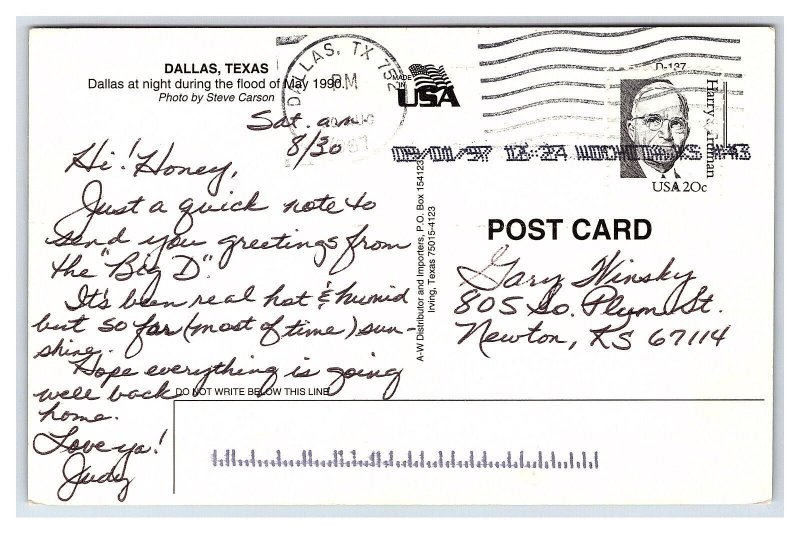 DALLAS, TEXAS
Dallas at night during the flood of May 1990.
Photo by Steve Carson
DALLAS, TX 752
PM
MADE IN USA
D-137
Harry S. Truman
USA 20c
09/01/97 12:24 WICHITA KS #3
Sat. am
8/30
Hi! Honey,
Just a quick note to
send you greetings from
the "Big D".
It's been real hot & humid
but so far (most of time) sun-
shine.
Hope everything is going
well back
home.
Love ya!
Judy
A-W Distributor and Importers, P.O. Box 154123
Irving, Texas 75015-4123
POST CARD
Gary Winsky
805 So. Plum St.
Newton, KS 67114
DO NOT WRITE BELOW THIS LINE